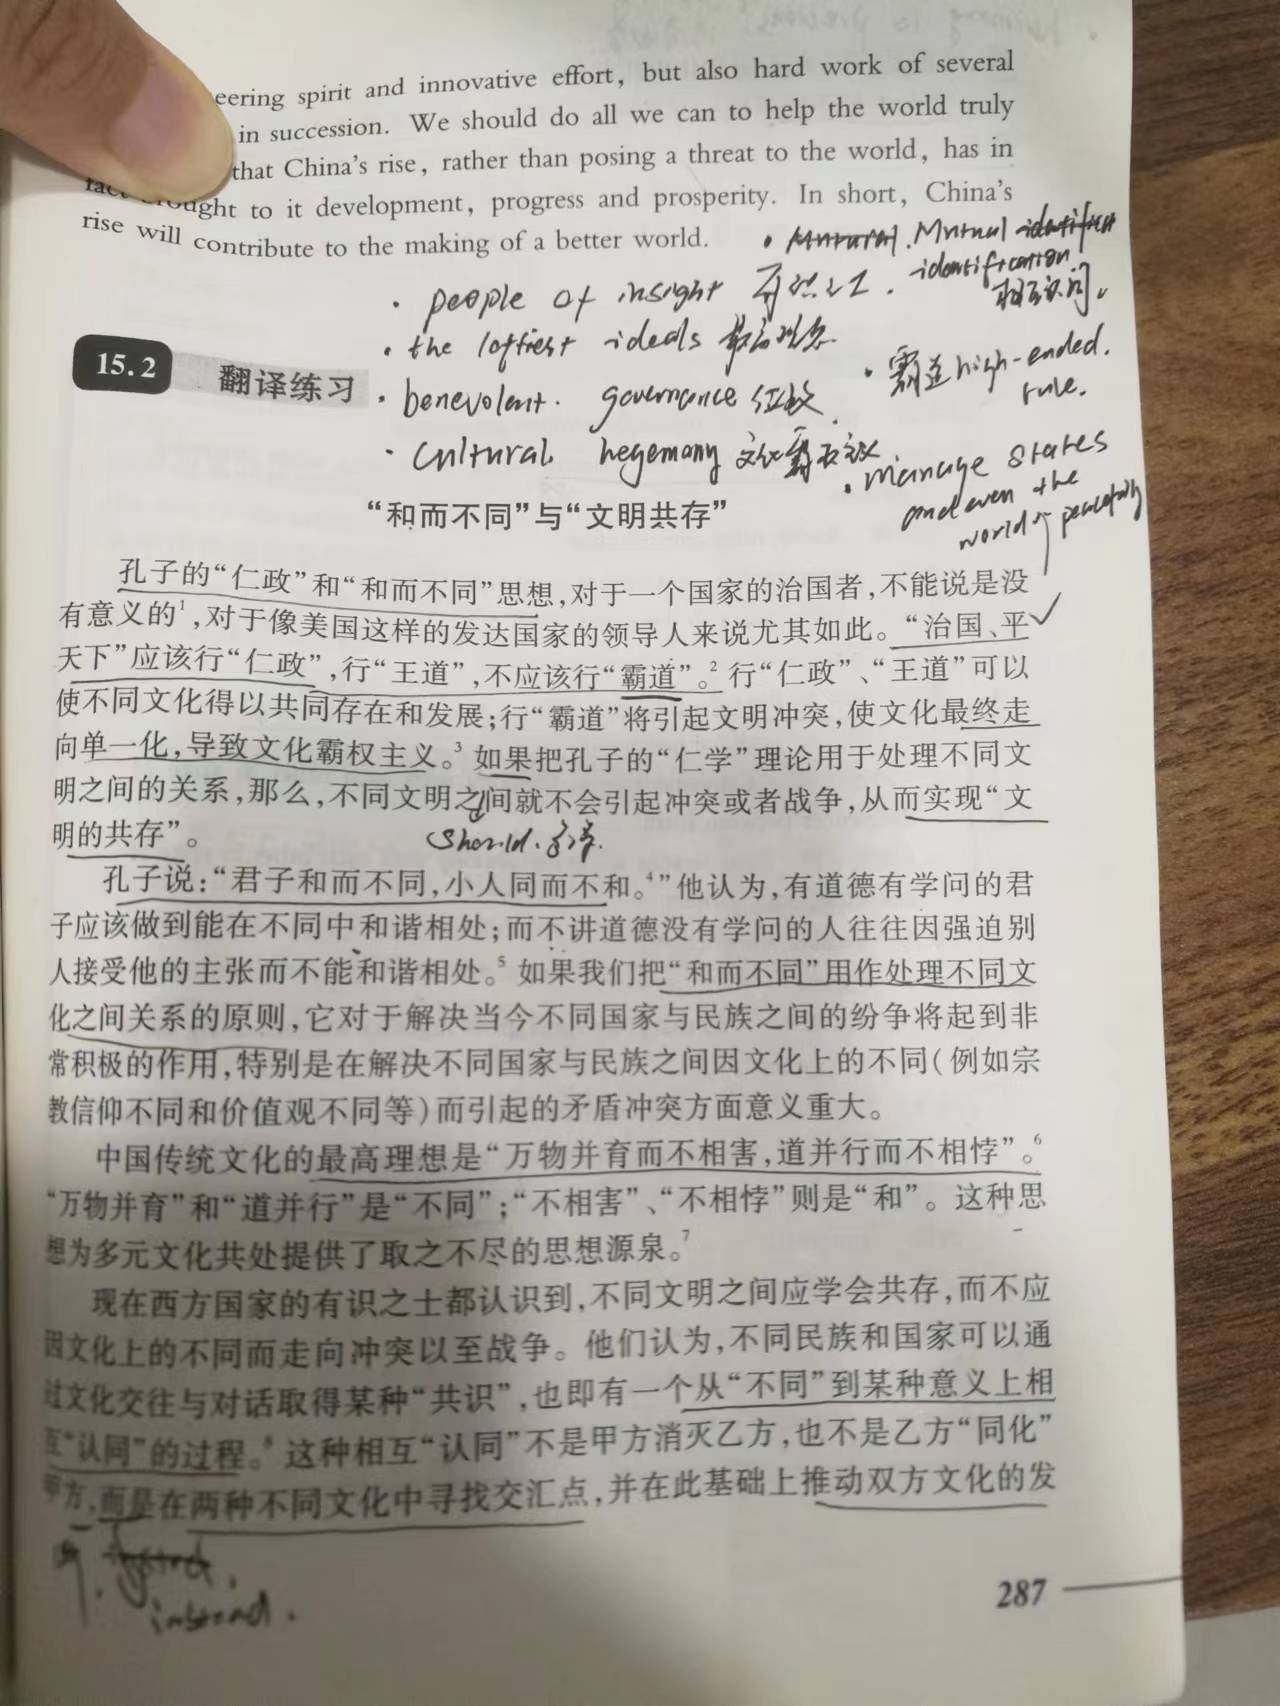 eering spirit and innovative effort, but also hard work of several
in succession. We should do all we can to help the world truly
that China's rise, rather than posing a threat to the world, has in
ought to it development, progress and prosperity. In short, China's
rise will contribute to the making of a better world.
· Mutual
identification
相互认同
· people of insight 有识之士
· the loftiest ideals 最高理想
· benevolent governance 仁政
· 霸道 high-ended
rule.
· cultural hegemony 文化霸权主义
· manage states
and even the
world peacefully
15.2 翻译练习
“和而不同”与“文明共存”
孔子的“仁政”和“和而不同”思想,对于一个国家的治国者,不能说是没
有意义的1,对于像美国这样的发达国家的领导人来说尤其如此。“治国、平
天下”应该行“仁政”,行“王道”,不应该行“霸道”。2 行“仁政”、“王道”可以
使不同文化得以共同存在和发展;行“霸道”将引起文明冲突,使文化最终走
向单一化,导致文化霸权主义。3 如果把孔子的“仁学”理论用于处理不同文
明之间的关系,那么,不同文明之间就不会引起冲突或者战争,从而实现“文
明的共存”。
should
孔子说:“君子和而不同,小人同而不和。4”他认为,有道德有学问的君
子应该做到能在不同中和谐相处;而不讲道德没有学问的人往往因强迫别
人接受他的主张而不能和谐相处。5 如果我们把“和而不同”用作处理不同文
化之间关系的原则,它对于解决当今不同国家与民族之间的纷争将起到非
常积极的作用,特别是在解决不同国家与民族之间因文化上的不同(例如宗
教信仰不同和价值观不同等)而引起的矛盾冲突方面意义重大。
中国传统文化的最高理想是“万物并育而不相害,道并行而不相悖”。6
“万物并育”和“道并行”是“不同”;“不相害”、“不相悖”则是“和”。这种思
想为多元文化共处提供了取之不尽的思想源泉。7
现在西方国家的有识之士都认识到,不同文明之间应学会共存,而不应
因文化上的不同而走向冲突以至战争。他们认为,不同民族和国家可以通
过文化交往与对话取得某种“共识”,也即有一个从“不同”到某种意义上相
互“认同”的过程。8 这种相互“认同”不是甲方消灭乙方,也不是乙方“同化”
甲方,而是在两种不同文化中寻找交汇点,并在此基础上推动双方文化的发
instead.
287